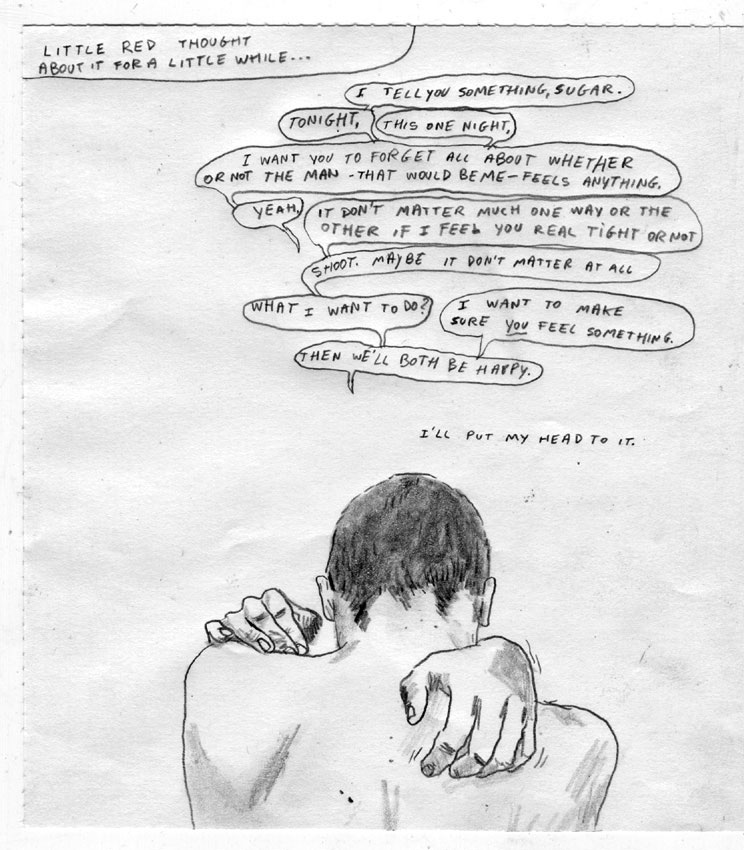 LITTLE RED THOUGHT
ABOUT IT FOR A LITTLE WHILE...
I TELL YOU SOMETHING, SUGAR.
TONIGHT,
THIS ONE NIGHT,
I WANT YOU TO FORGET ALL ABOUT WHETHER
OR NOT THE MAN - THAT WOULD BE ME - FEELS ANYTHING.
YEAH,
IT DON'T MATTER MUCH ONE WAY OR THE
OTHER, IF I FEEL YOU REAL TIGHT OR NOT
SHOOT. MAYBE IT DON'T MATTER AT ALL
WHAT I WANT TO DO?
I WANT TO MAKE
SURE YOU FEEL SOMETHING.
THEN WE'LL BOTH BE HAPPY.
I'LL PUT MY HEAD TO IT.